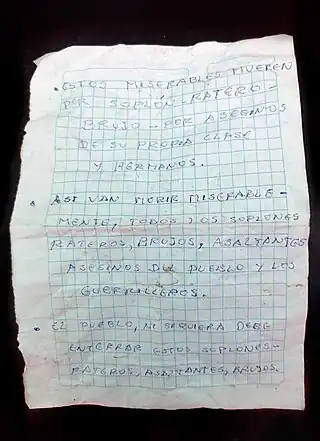 • ESTOS MISERABLES MUEREN
POR SOPLON, RATERO -
BRUJO - POR ASESINOS
DE SU PROPIA CLASE
Y HERMANOS.
• ASI VAN MORIR MISERABLE -
MENTE, TODOS LOS SOPLONES
RATEROS, BRUJOS, ASALTANTES
ASESINOS DEL PUEBLO Y LOS
GUERRILLEROS.
• EL PUEBLO, NI SIQUIERA DEBE
ENTERRAR ESTOS SOPLONES -
RATEROS, ASALTANTES, BRUJOS.